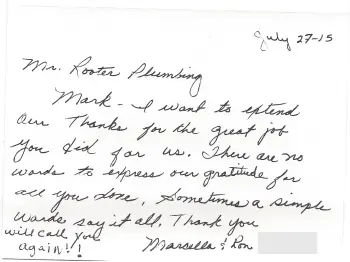 July 27-15
Mr. Rooter Plumbing
Mark - I want to extend
our Thanks for the great job
you did for us. There are no
words to express our gratitude for
all you done, Sometimes a simple
words say it all. Thank you
will call you
again!!
Marsella & Ron